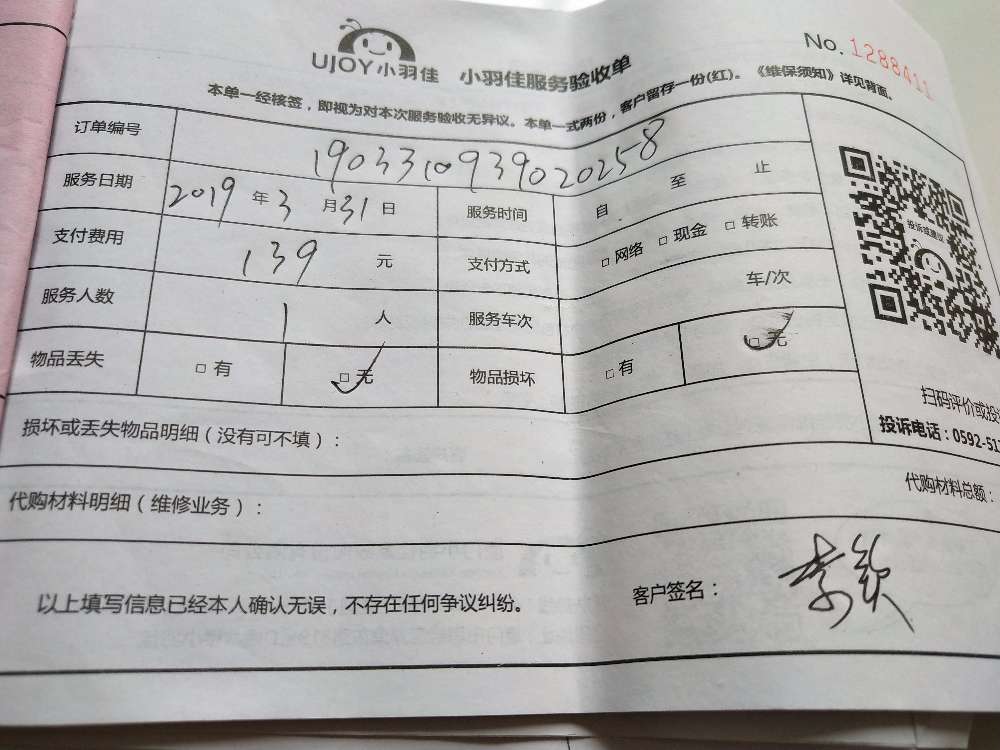 UJOY小羽佳 小羽佳服务验收单 No. 1288411
本单一经核签，即视为对本次服务验收无异议。本单一式两份，客户留存一份(红)。《维保须知》详见背面。
订单编号 190331093902025-8
服务日期 2019 年 3 月 31 日 服务时间 自 至 止
支付费用 139 元 支付方式 □ 网络 □ 现金 □ 转账
服务人数 1 人 服务车次 车/次
物品丢失 □ 有 □ 无 物品损坏 □ 有 □ 无
投诉或建议
扫码评价或投
投诉电话：0592-51
损坏或丢失物品明细（没有可不填）：
代购材料明细（维修业务）： 代购材料总额：
以上填写信息已经本人确认无误，不存在任何争议纠纷。 客户签名：